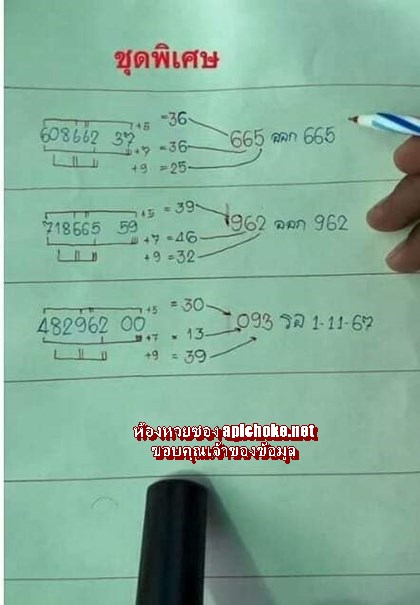 ชุดพิเศษ
+5 =36
608662 37 +7 =36 665 ออก 665
+9 =25
+5 =39
718665 59 +7 =46 962 ออก 962
+9 =32
+5 =30
482962 00 +7 = 13 093 รอ 1-11-67
+9 =39
ห้องหวยซอง apichoke.net
ขอบคุณเจ้าของข้อมูล